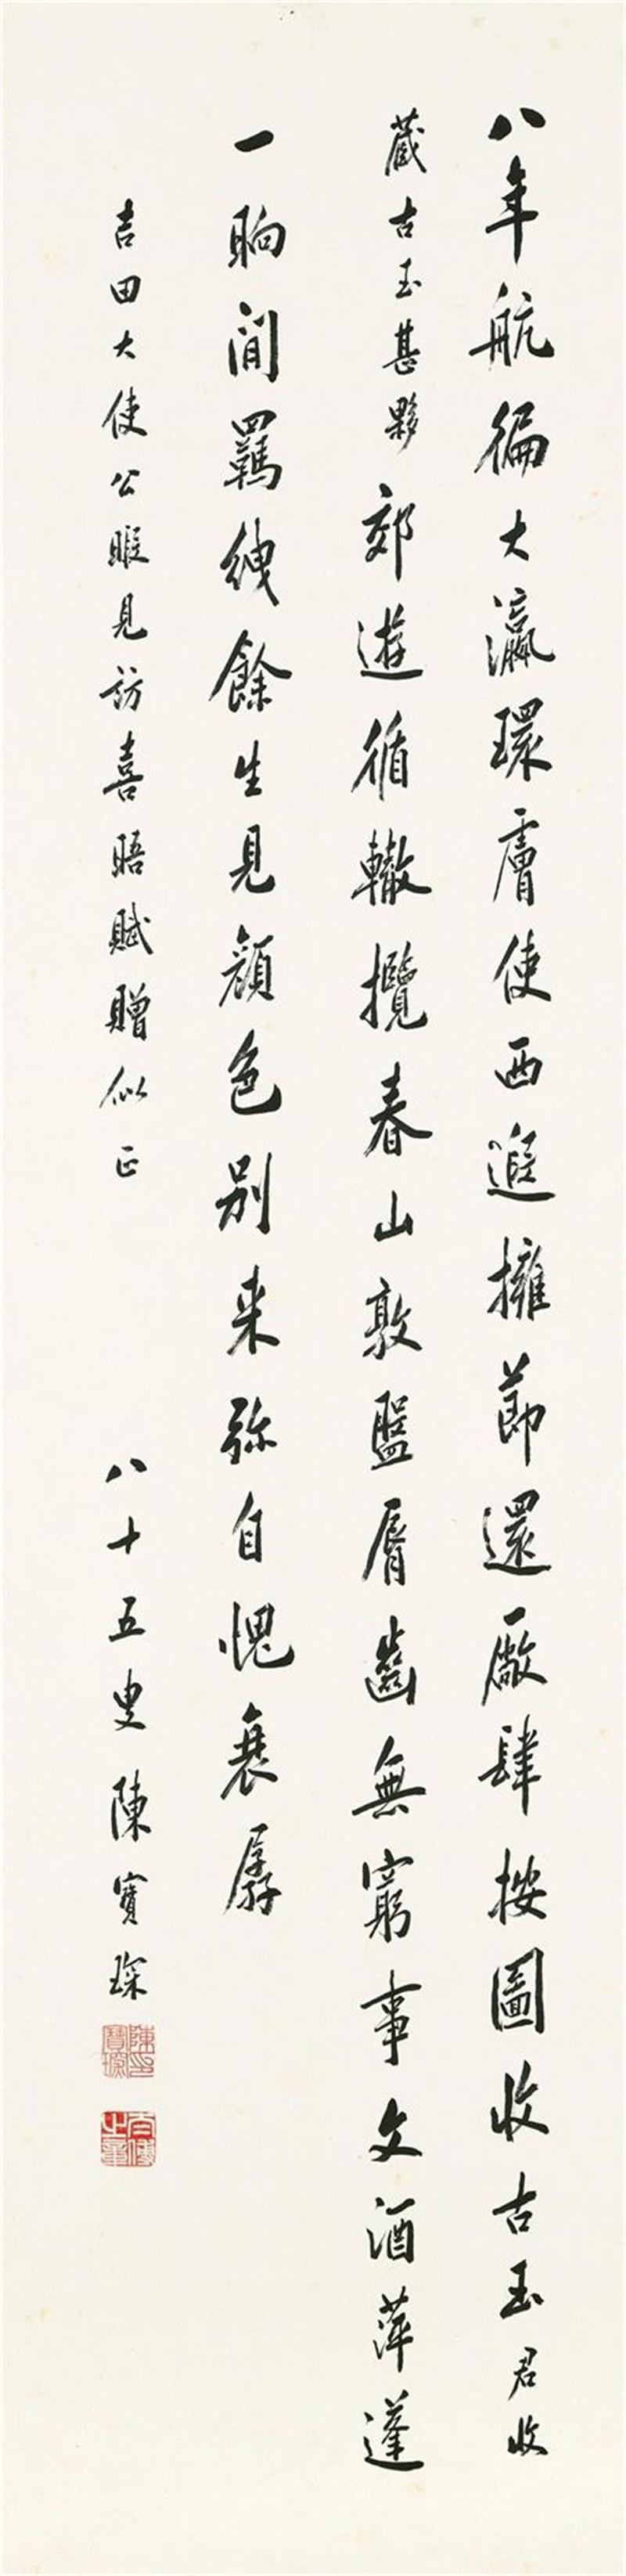 八年航徧大瀛環膚使西遄擁節還廠肆按圖收古玉君收
藏古玉甚夥郊遊循轍攬春山敦盤脣齒無窮事文酒萍蓬
一晌間羈紲餘生見顏色別来弥自愧衰孱
吉田大使公暇見訪喜晤賦贈似正
八十五叟陳寶琛
陳寶琛印
太傅之章